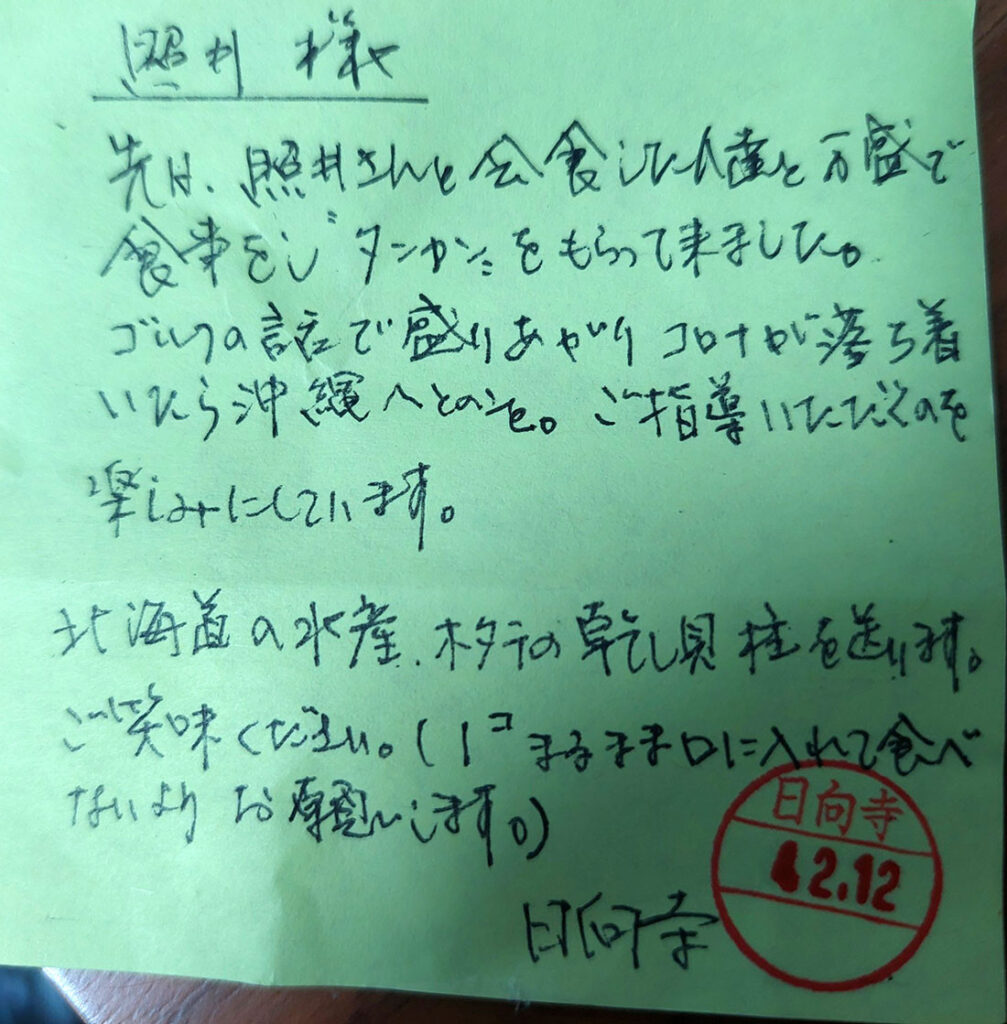 照井 様
先は、照井さんと会食した人達と万盛で
食事をし゛タンカン〟をもらって来ました。
ゴルフの話で盛りあがり コロナが落ち着
いたら沖縄へとのこと。ご指導いただくのを
楽しみにしています。
北海道の水産、ホタテの乾し貝柱を送ります。
ご笑味ください。(1コまるまま口に入れて食べ
ないよう お願いします。)
日向寺
日向寺
2.12